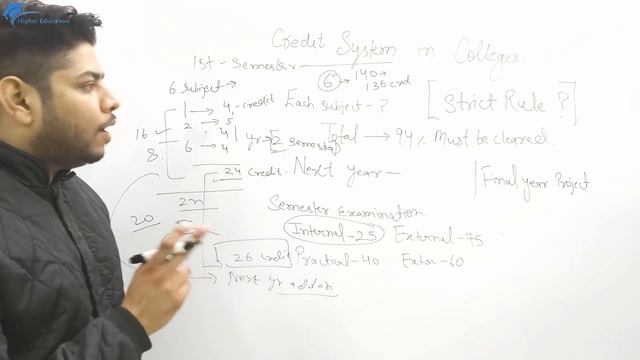 Higher Education
Credit System in Colleges.
1st - Semester
6 → 140 →
136 crd
6 subject →
[Strict Rule ?]
1 → 4 - credit
Each subject - ?
2 → 5
4
6 → 4
16
8
1 yr → [2 semester]
Total → 94% Must be cleared.
24 credit.
Next year —
Final year Project
2n
20
Semester Examination
Internal - 25
External - 75
26 credit
Practical - 40
Exter - 60
→ Next yr addon